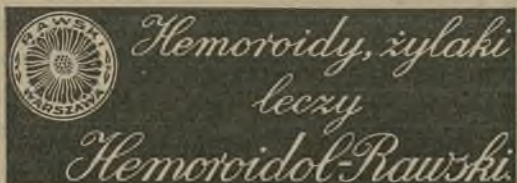 RAWSKI
WARSZAWA
Hemoroidy, żylaki
leczy
Hemoroidol-Rawski.